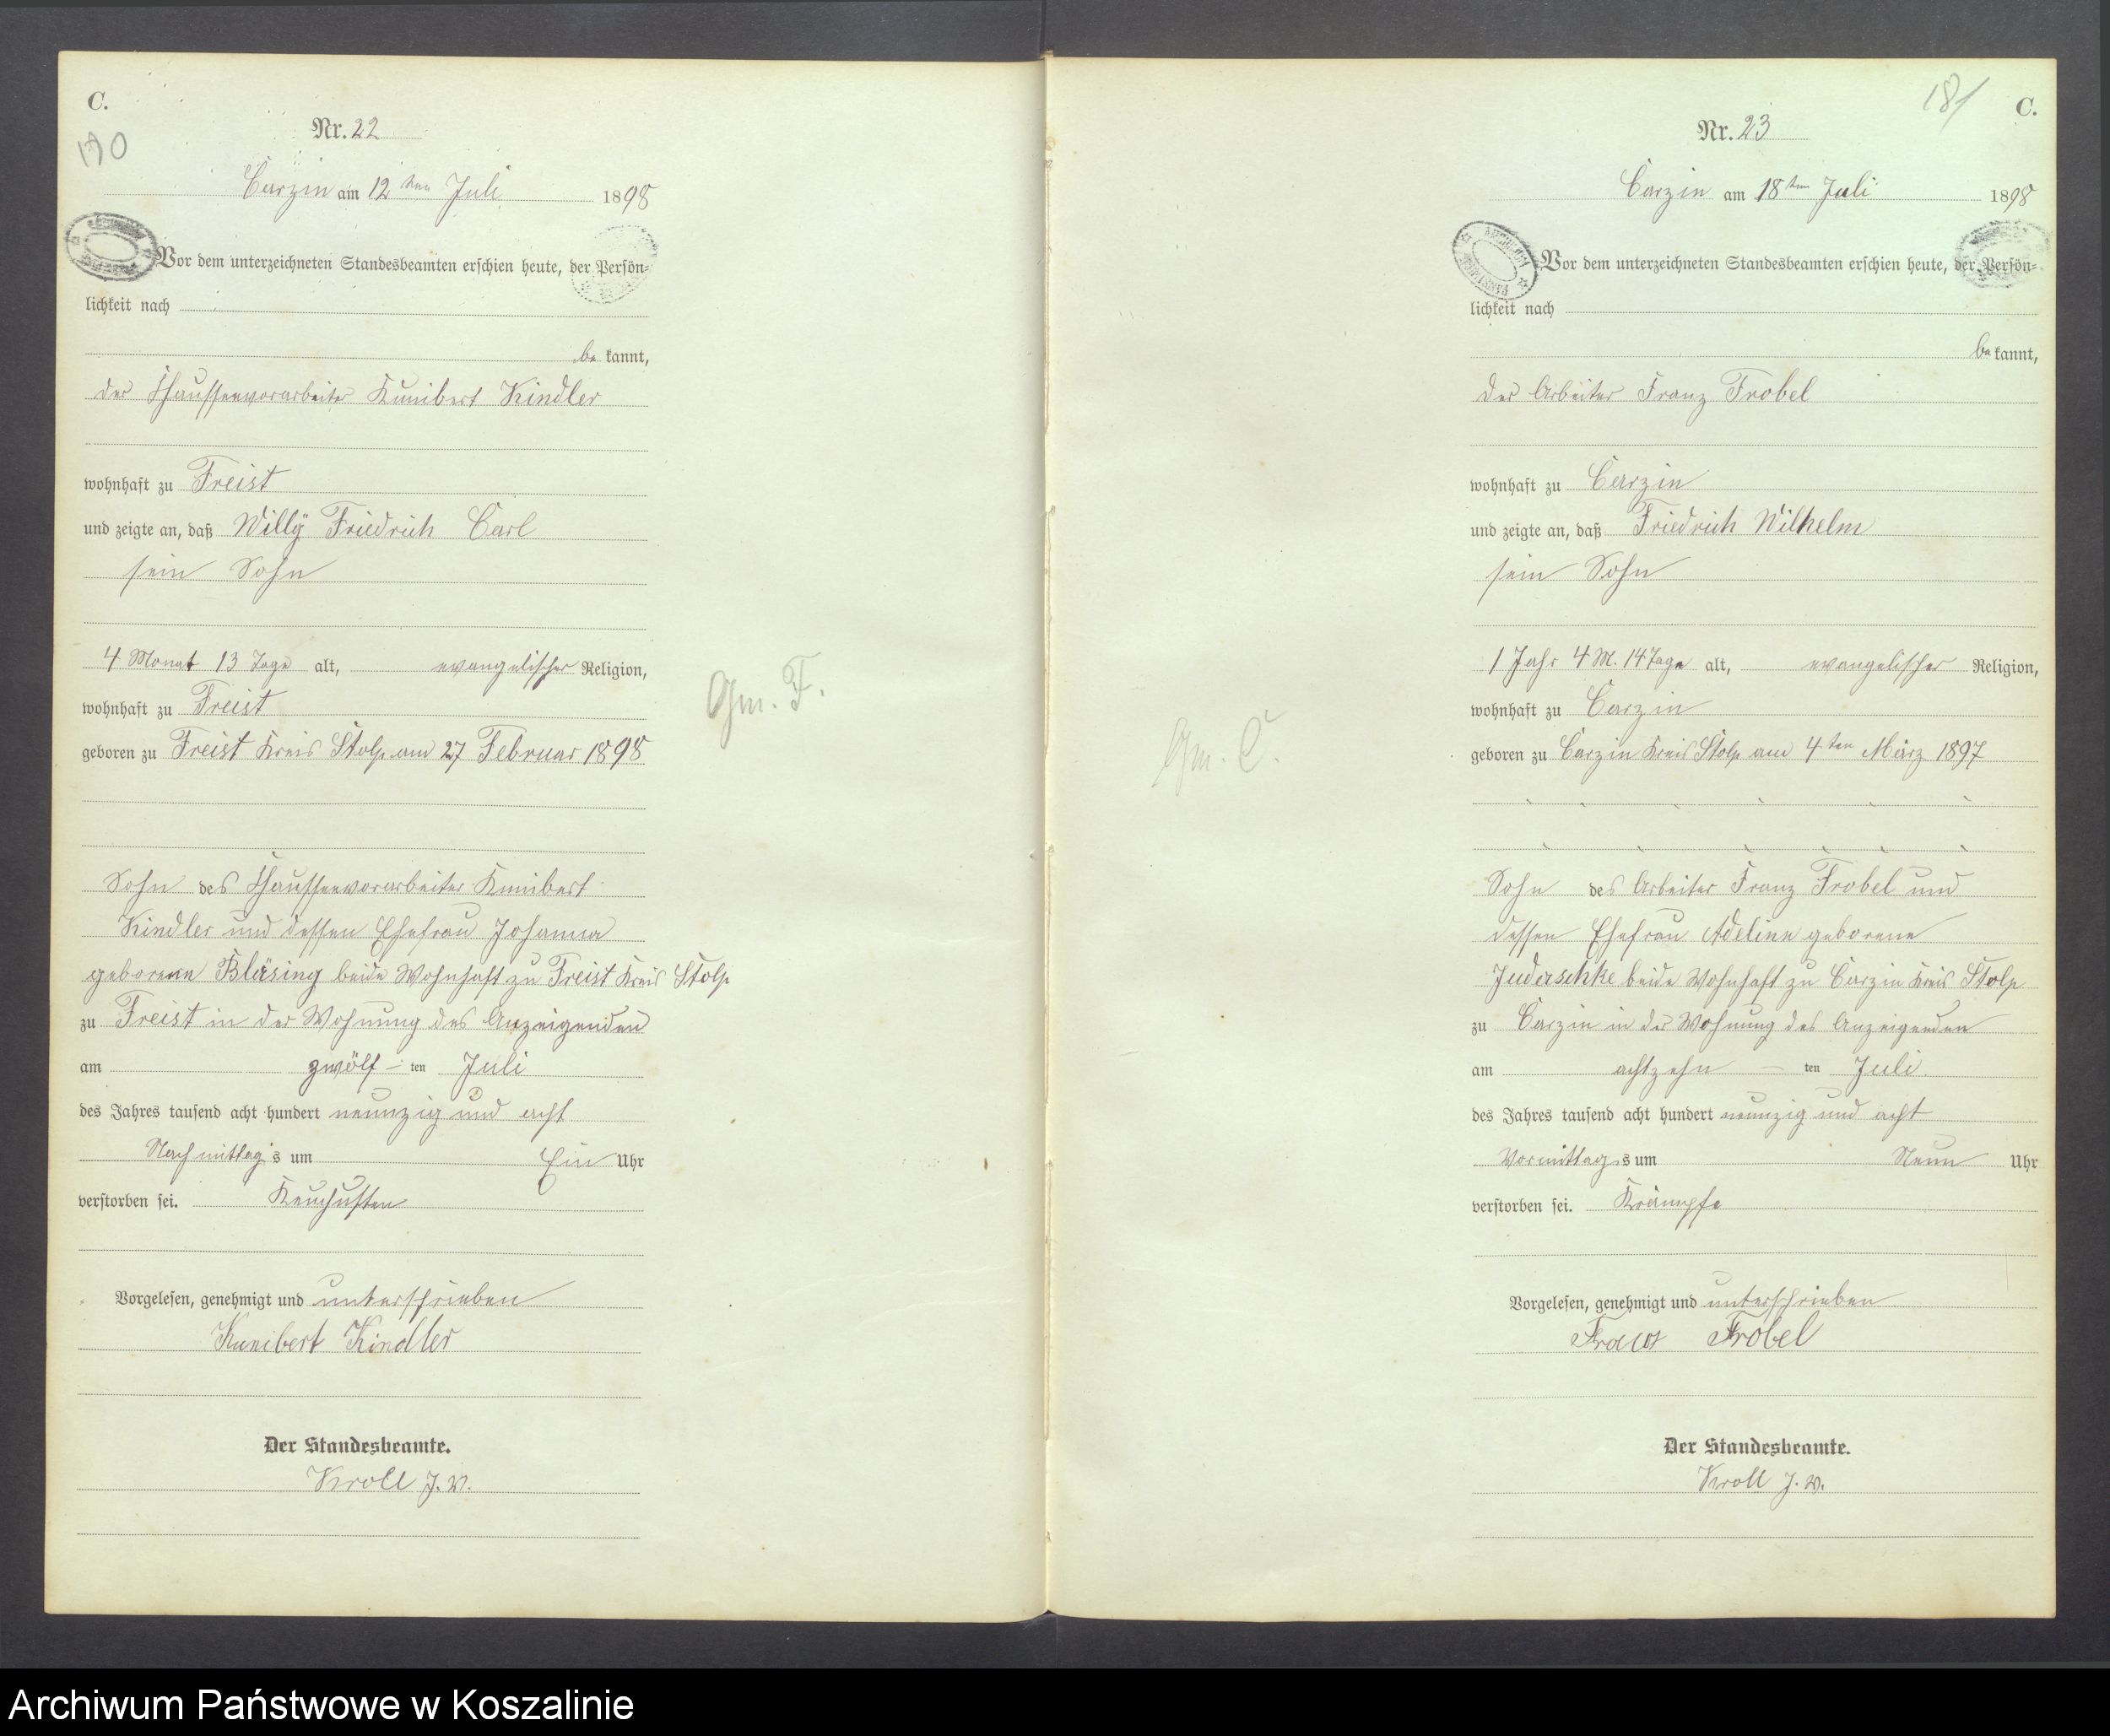 C.
190
Nr. 22
Carzin am 12ten Juli 1898
Vor dem unterzeichneten Standesbeamten erschien heute, der Persön=
lichkeit nach
be kannt,
der Chausseevorarbeiter Kunibert Kindler
wohnhaft zu Freist
und zeigte an, daß Willÿ Friedrich Carl
sein Sohn
4 Monat 13 Tage alt, evangelischer Religion,
wohnhaft zu Freist
geboren zu Freist Kreis Stolp am 27 Februar 1898
Sohn des Chausseevorarbeiter Kunibert
Kindler und dessen Ehefrau Johanna
geborene Bläsing beide Wohnhaft zu Freist Kreis Stolp
zu Freist in der Wohnung des Anzeigenden
am zwölf - ten Juli
des Jahres tausend acht hundert neunzig und acht
Nachmittags um Ein Uhr
verstorben sei. Keuchusten
Vorgelesen, genehmigt und unterschrieben
Kunibert Kindler
Der Standesbeamte.
Kroll J. V.
Gm. F.
181
C.
Nr. 23
Carzin am 18ten Juli 1898
Vor dem unterzeichneten Standesbeamten erschien heute, der Persön=
lichkeit nach
be kannt,
der Arbeiter Franz Frobel
wohnhaft zu Carzin
und zeigte an, daß Friedrich Wilhelm
sein Sohn
1 Jahr 4 M. 14 Tage alt, evangelischer Religion,
wohnhaft zu Carzin
geboren zu Carzin Kreis Stolp am 4ten März 1897
Sohn des Arbeiter Franz Frobel und
dessen Ehefrau Adeline geborene
Judaschke beide Wohnhaft zu Carzin Kreis Stolp
zu Carzin in der Wohnung des Anzeigenden
am achtzehn - ten Juli
des Jahres tausend acht hundert neunzig und acht
Vormittags um Neun Uhr
verstorben sei. Krämpfe
Vorgelesen, genehmigt und unterschrieben
Frobel
Der Standesbeamte.
Kroll J. V.
Gm. C.
Archiwum Państwowe w Koszalinie